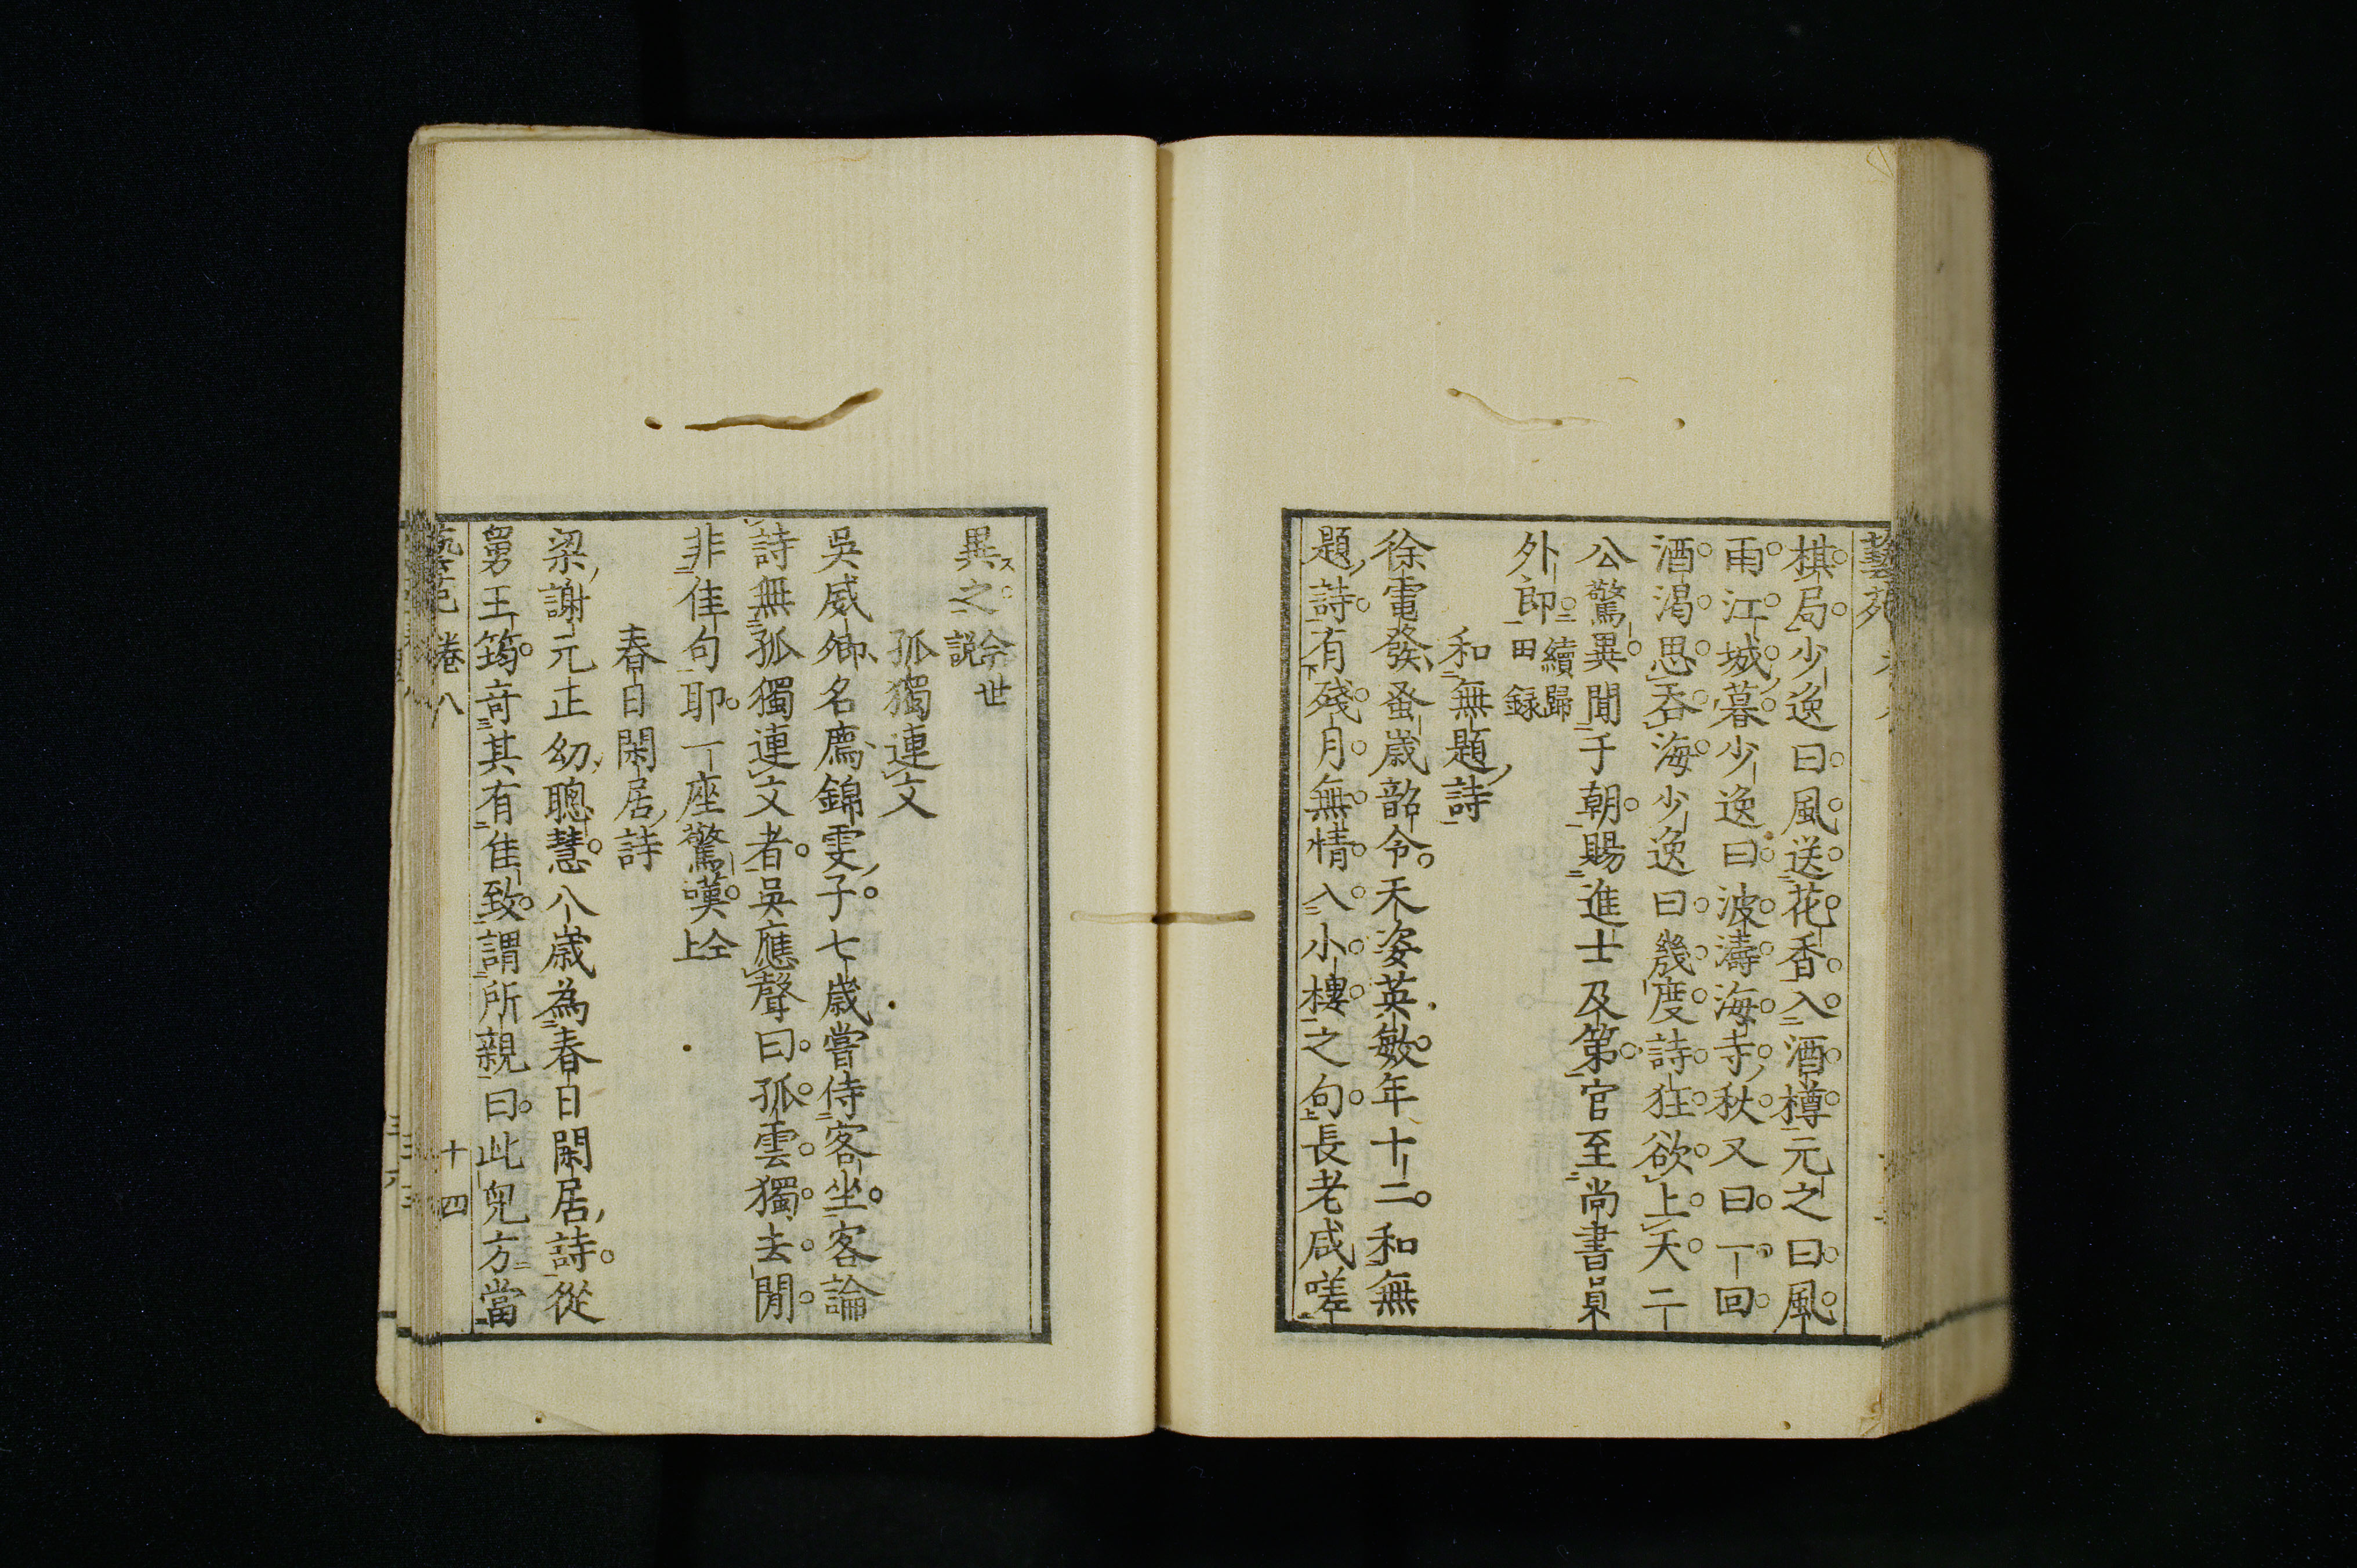 藝苑
棋局少逸曰風送花香入酒樽元之曰風
雨江城暮少逸曰波濤海寺秋又曰一回
酒渴思吞海少逸曰幾度詩狂欲上天二
公驚異聞于朝賜進士及第官至尚書員
外郎續歸田録
和無題詩
徐電發蚤歲韶令天姿英敏年十二和無
題詩有殘月無情入小樓之句長老咸嗟
異之今世説
孤獨連文
吳威卿名廌錦雯子七歲嘗侍客坐客論
詩無孤獨連文者吳應聲曰孤雲獨去閒
非佳句耶一座驚嘆仝上
春日閑居詩
梁謝元正幼聰慧八歲為春日閑居詩從
舅王筠竒其有佳致謂所親曰此兒方當
藝苑 卷八 十四